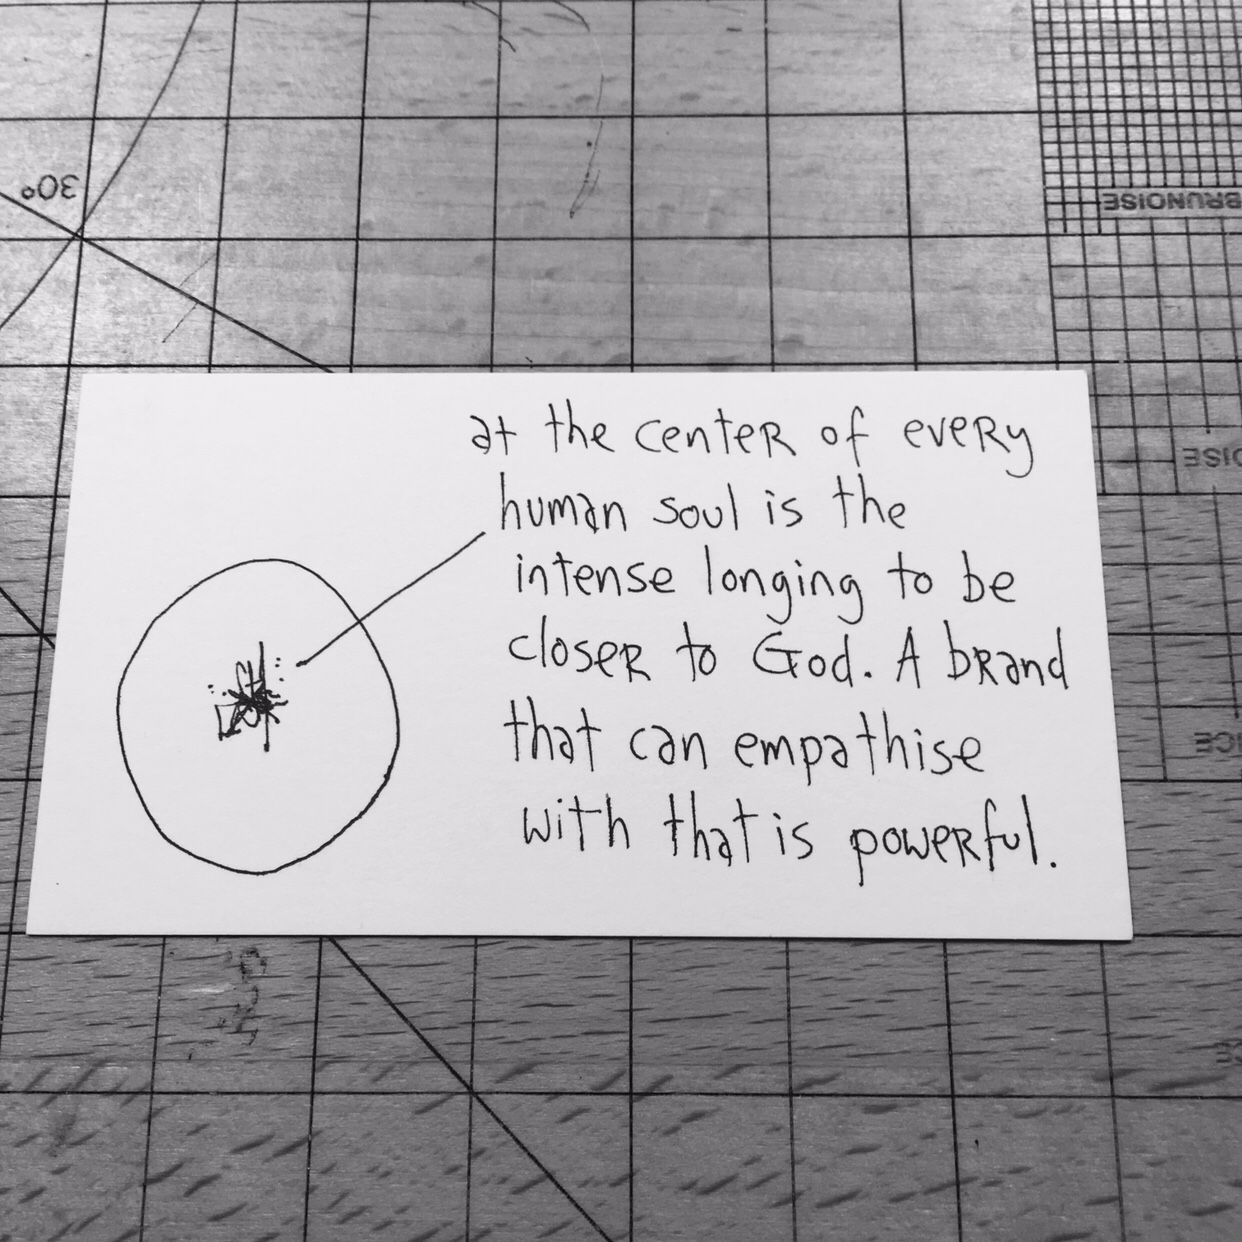 30°
BRUNOISE
at the center of every
human soul is the
intense longing to be
closer to God. A brand
that can empathise
with that is powerful.